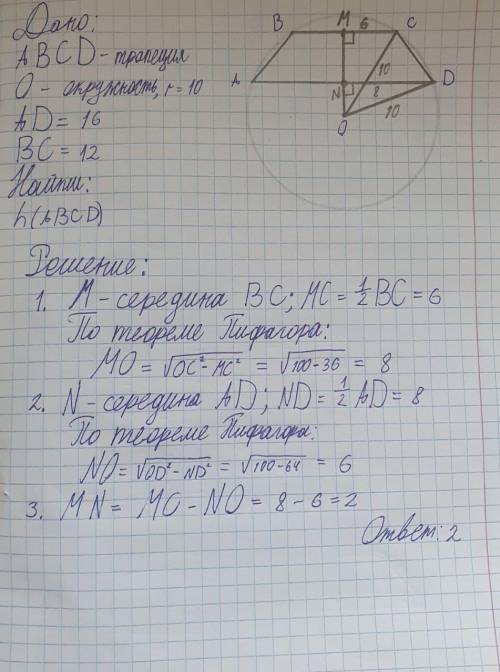 Дано:
ABCD - трапеция
O - окружность, r = 10
AD = 16
BC = 12
Найти:
h(ABCD)
B M 6 C
A N 10 8 D
O 10
Решение:
1. M - середина BC; MC = 1/2 BC = 6
По теореме Пифагора:
MO = √OC² - MC² = √100-36 = 8
2. N - середина AD; ND = 1/2 AD = 8
По теореме Пифагора:
NO = √OD² - ND² = √100-64 = 6
3. MN = MO - NO = 8 - 6 = 2
Ответ: 2